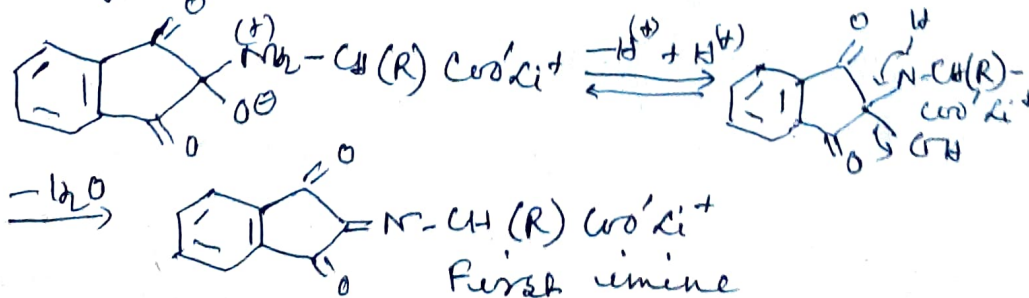 O
(+)
NH2 - CH (R) COO'Li+ -H(+) + H(+)
O⊖
O
O H
N-CH(R)-
COO'Li+
O OH
-H2O
O
=N- CH (R) COO'Li+
O
First imine